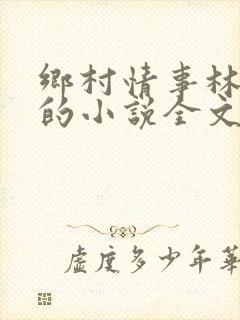 鄉村情事林
的小說全文
虛度多少年華